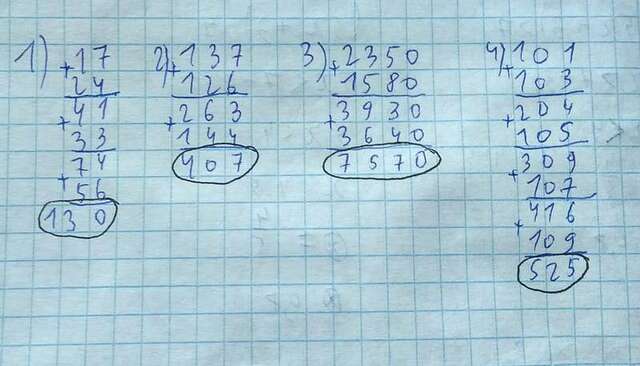 1) +17
24
+41
33
+74
56
130
2) +137
126
+263
144
407
3) +2350
1580
+3930
3640
7570
4) +101
103
+204
105
+309
107
+416
109
525